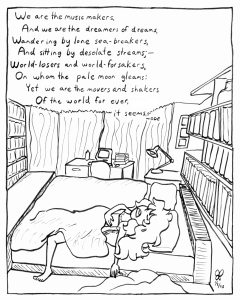 We are the music makers,
And we are the dreamers of dreams,
Wandering by lone sea-breakers,
And sitting by desolate streams;—
World-losers and world-forsakers,
On whom the pale moon gleams:
Yet we are the movers and shakers
Of the world for ever,
it seems.